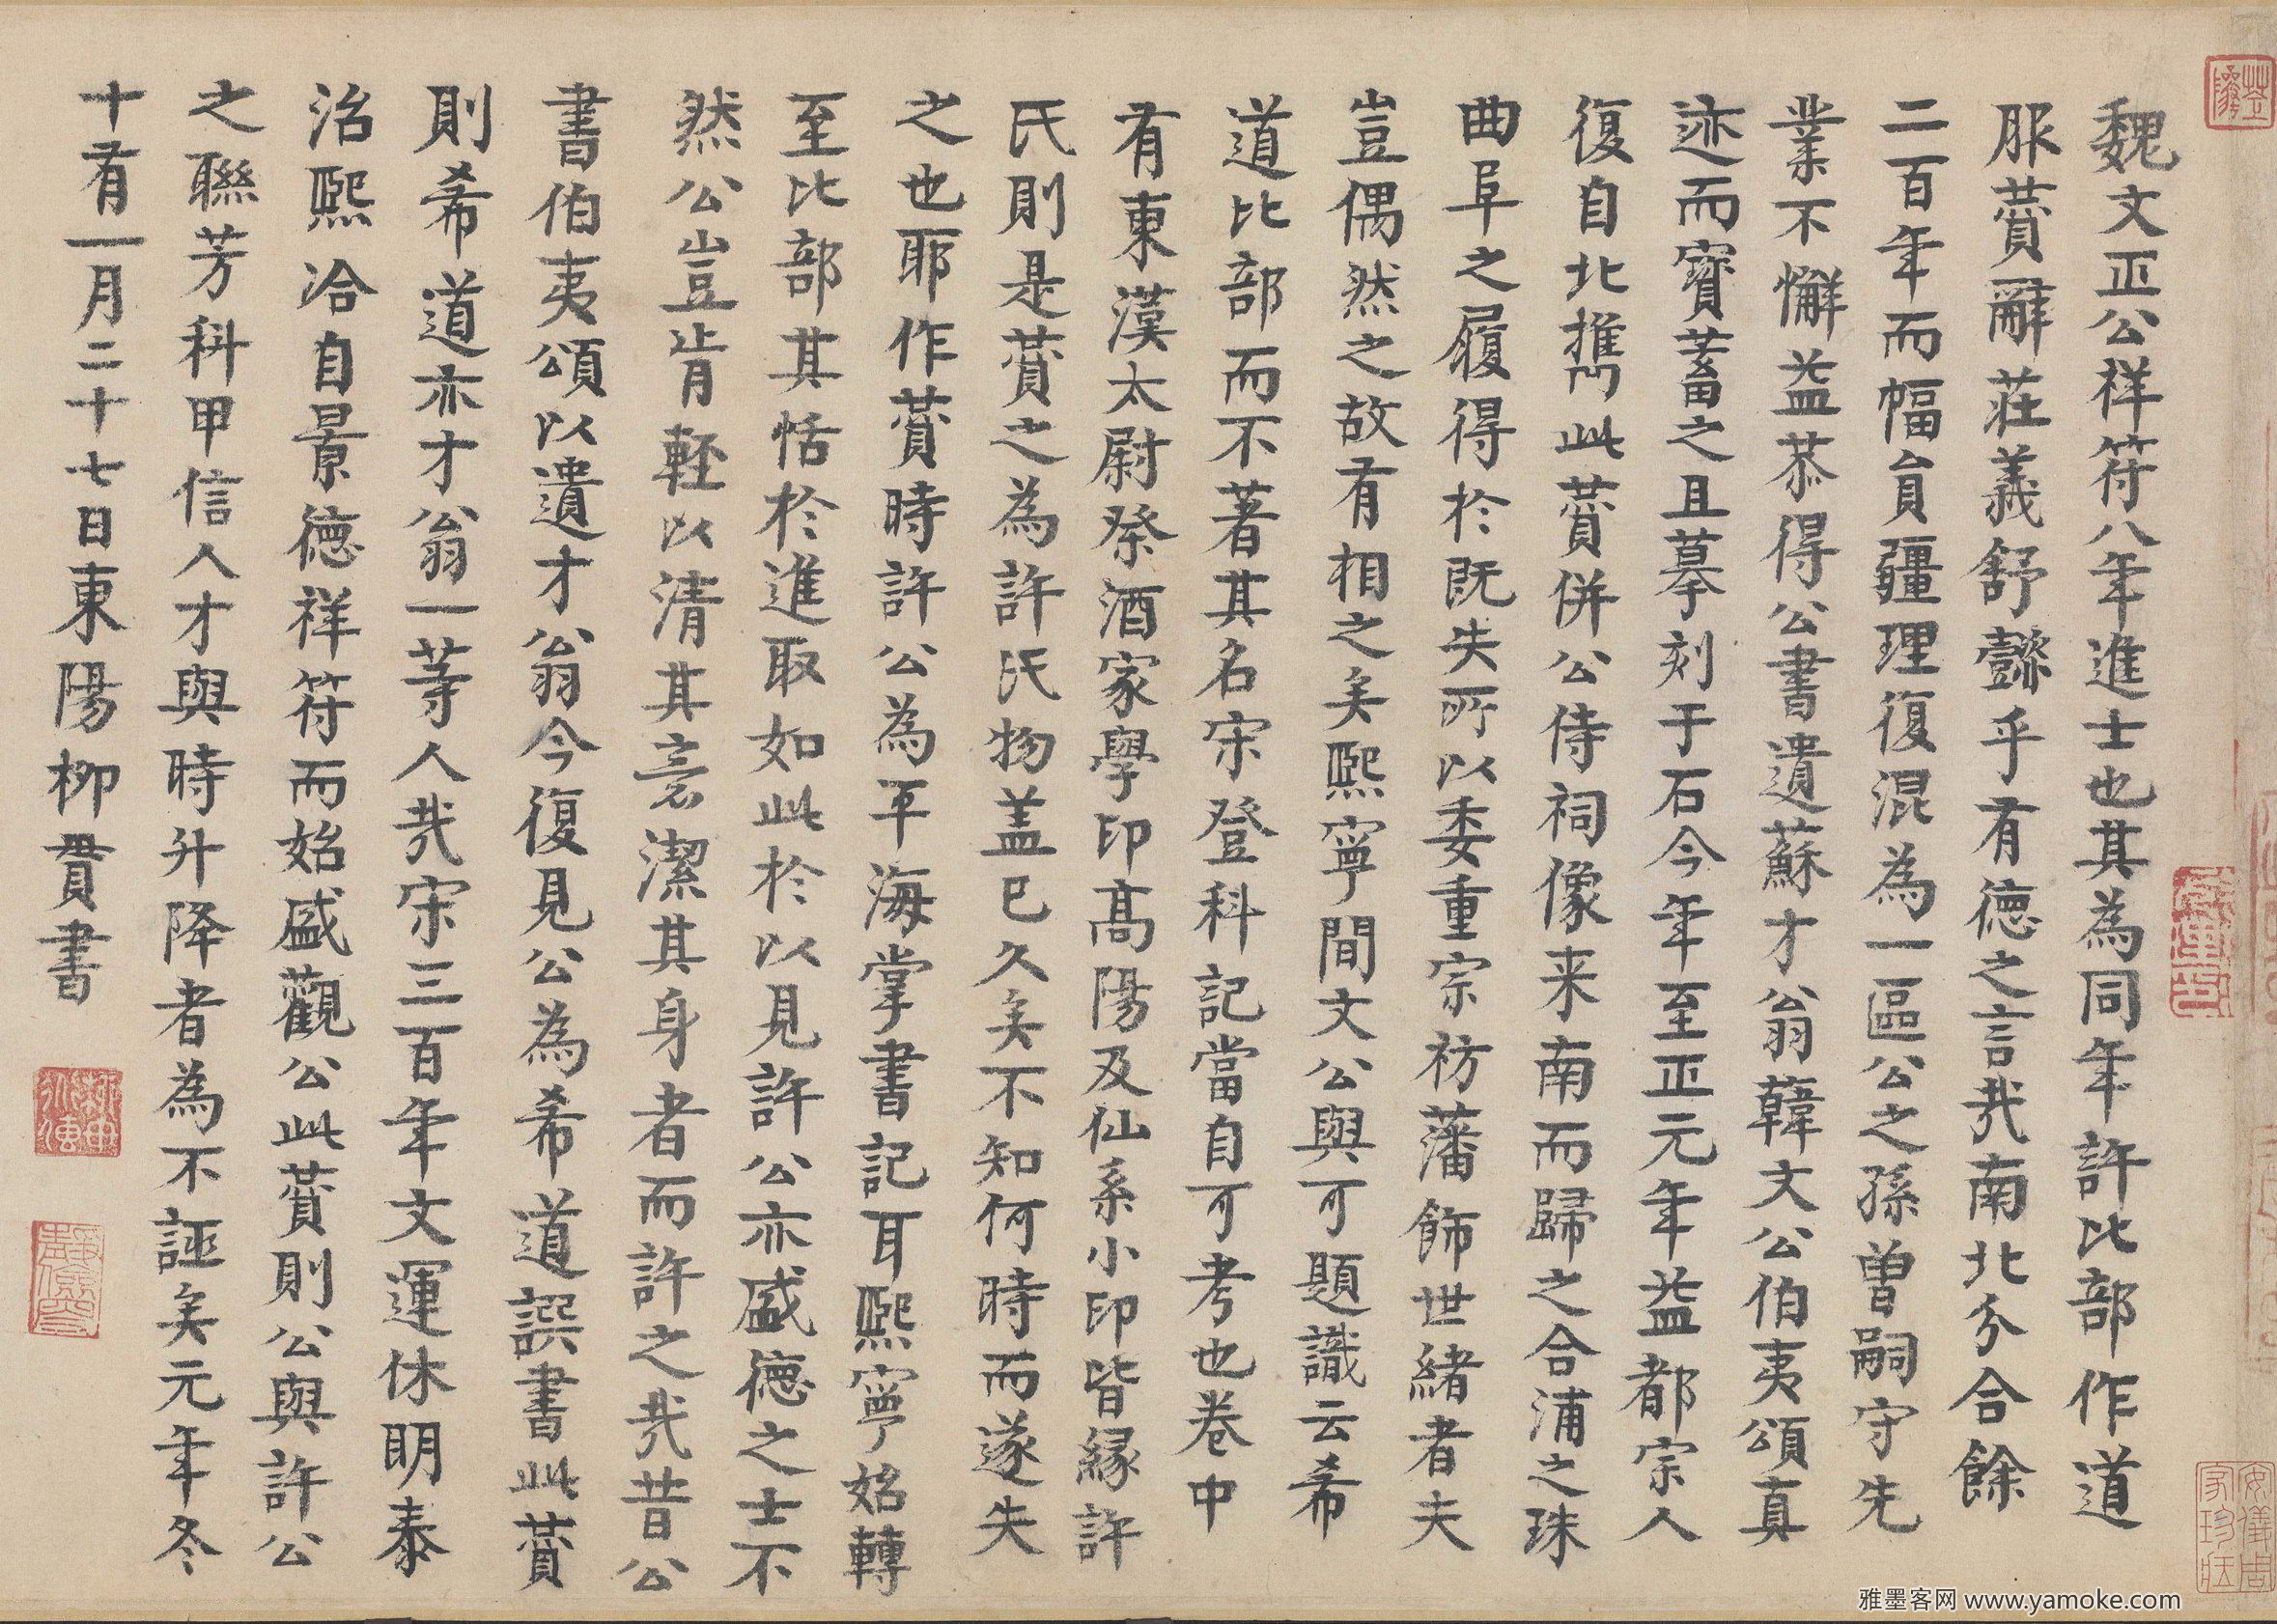 魏文正公祥符八年進士也其為同年許比部作道
服賛辭莊義舒懿乎有德之言哉南北分合餘
二百年而幅員疆理復混為一區公之孫曾嗣守先
業不懈益恭得公書遺蘇才翁韓文公伯夷頌真
迹而寶蓄之且摹刻于石今年至正元年益都宗人
復自北攜此賛併公侍祠像来南而歸之合浦之珠
曲阜之履得於既失所以委重宗祊藩飾世緒者夫
豈偶然之故有相之矣熙寧間文公與可題識云希
道比部而不著其名宋登科記當自可考也卷中
有東漢太尉祭酒家學印高陽及仙系小印皆縁許
氏則是賛之為許氏物盖已久矣不知何時而遂失
之也耶作賛時許公為平海掌書記耳熙寧始轉
至比部其恬於進取如此於以見許公亦盛德之士不
然公豈肯輕以清其意潔其身者而許之哉昔公
書伯夷頌以遺才翁今復見公為希道譔書此賛
則希道亦才翁一等人哉宋三百年文運休明泰
治熙洽自景德祥符而始盛觀公此賛則公與許公
之聯芳科甲信人才與時升降者為不誣矣元年冬
十有一月二十七日東陽柳貫書
安儀周家珍藏
雅墨客网 www.yamoke.com